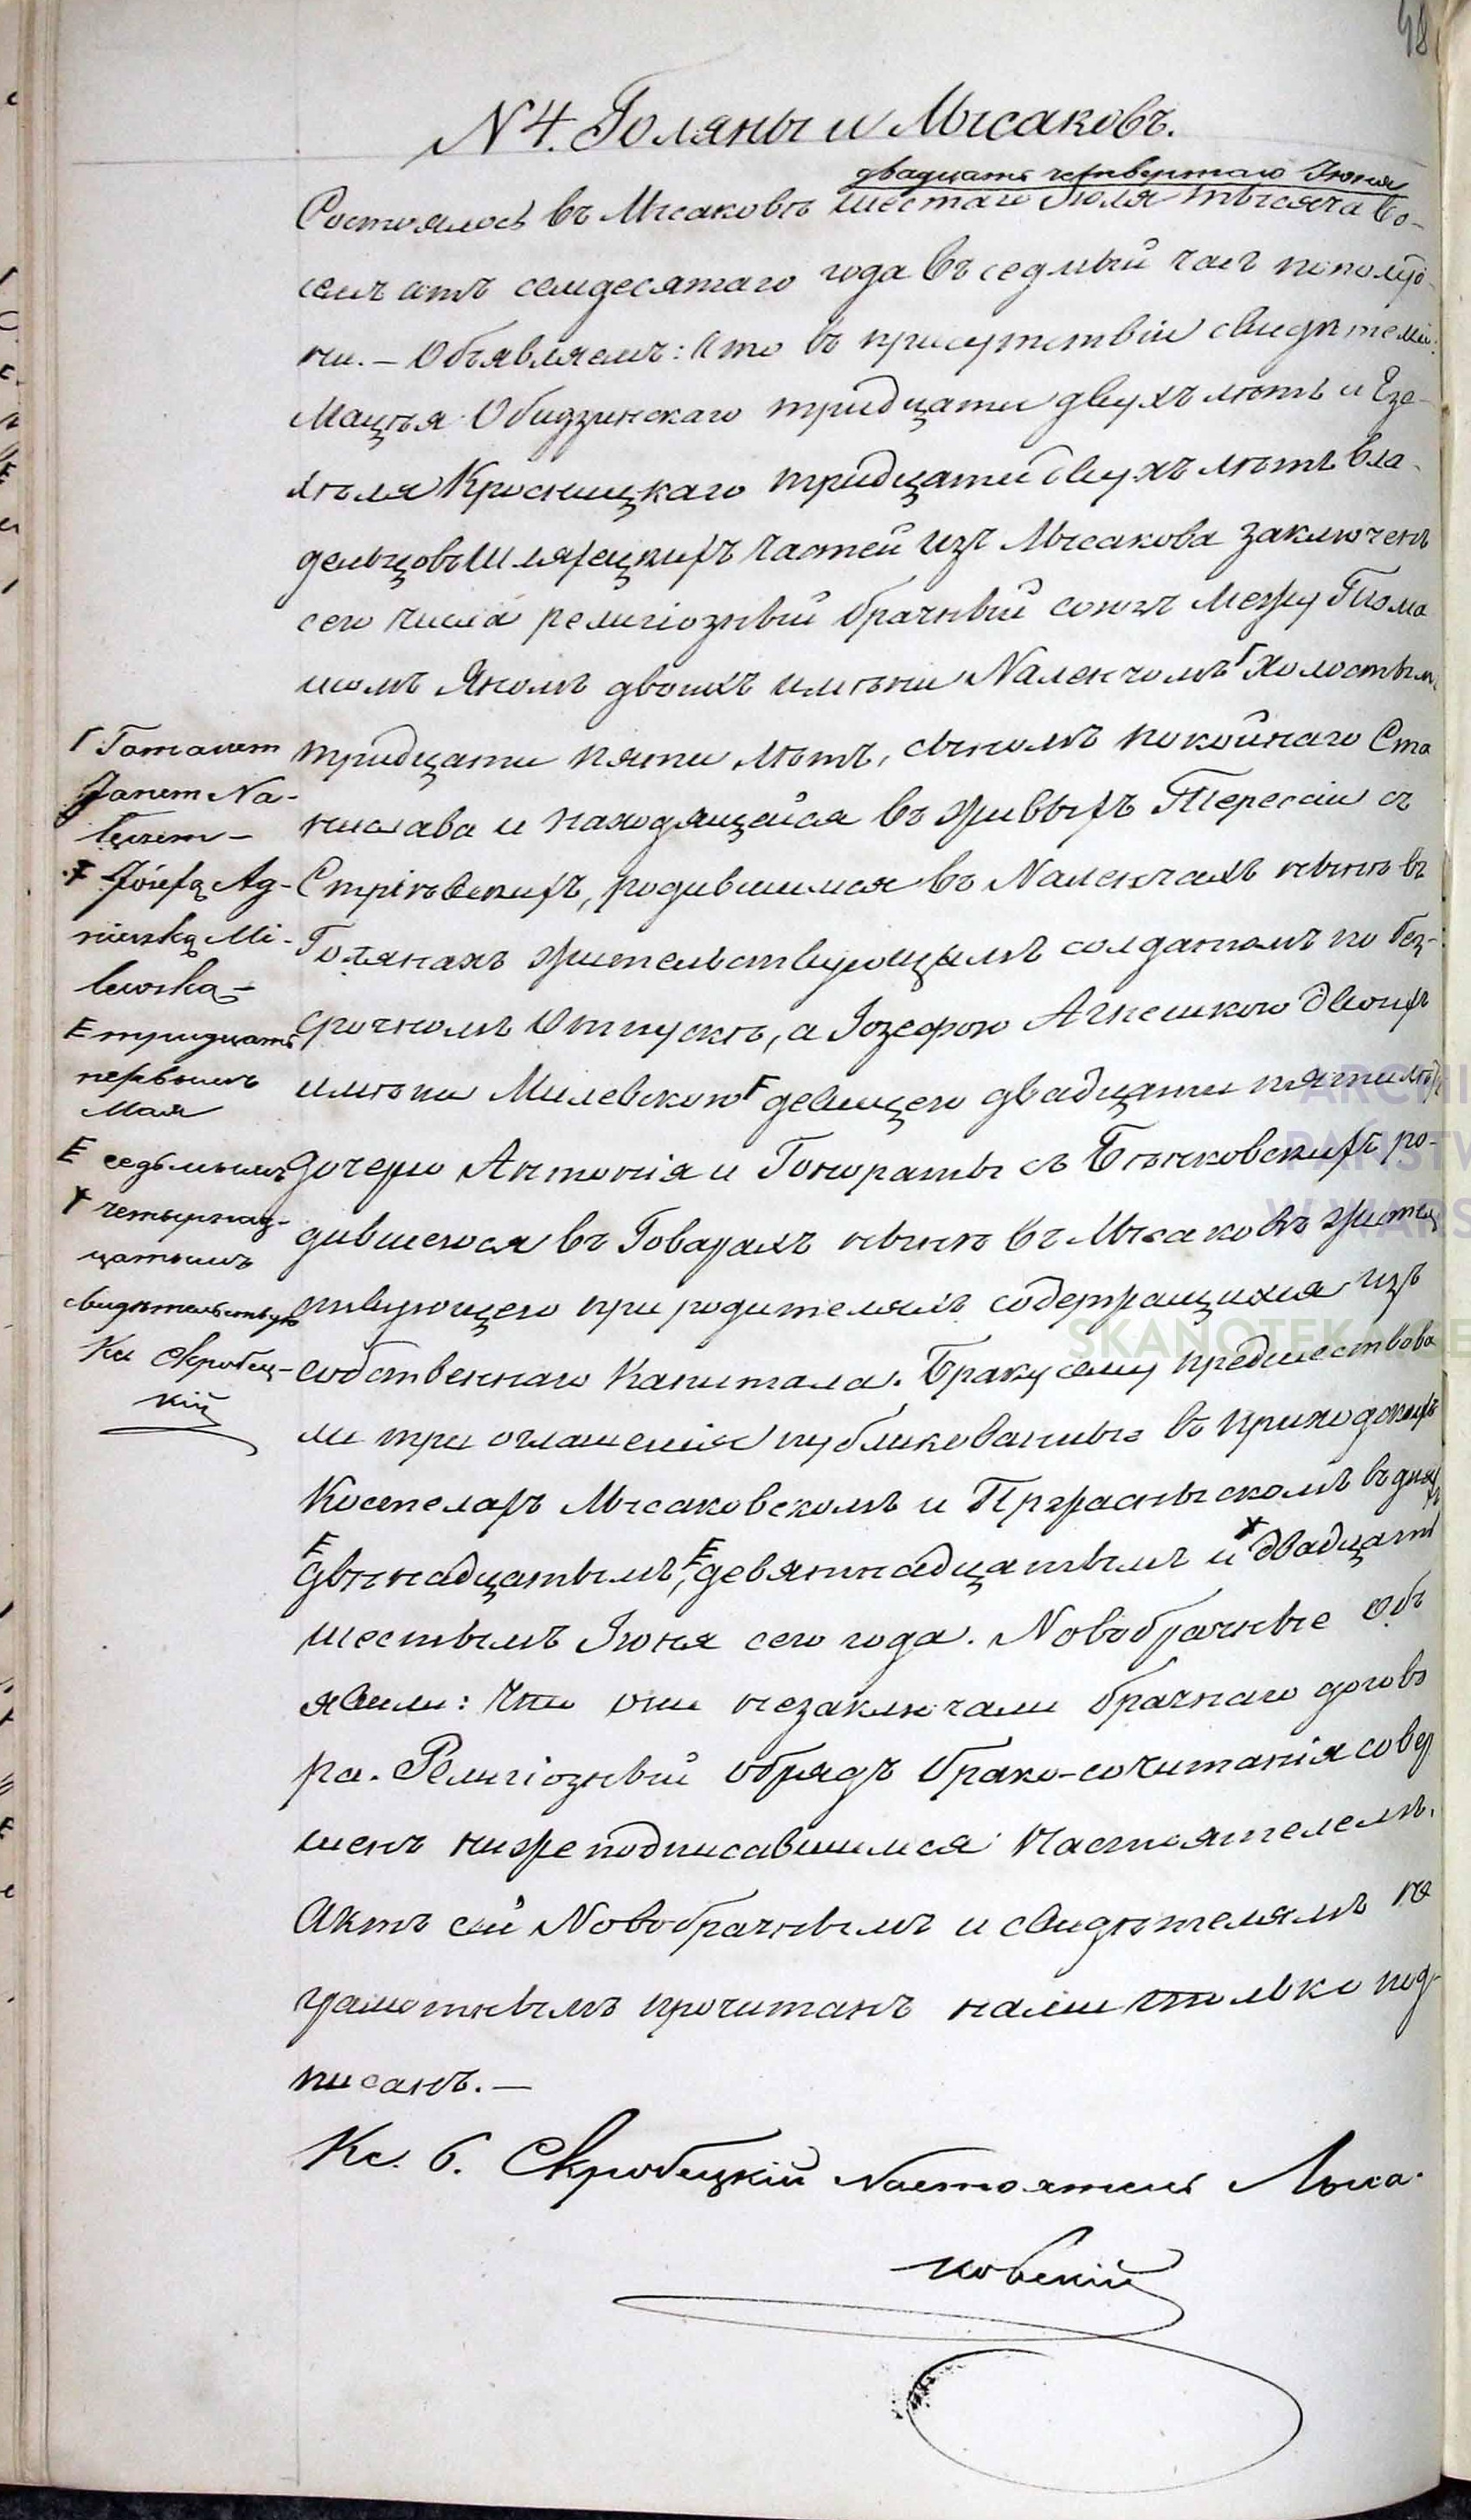 48
N 4. Голяны и Лысаковъ.
двадцать четвертаго Іюня
Состоялось въ Лысаковѣ шестаго Іюля тысяча во-
семъ сотъ семдесятаго года въ седмый часъ пополуд-
ни. – Объявляемъ: что въ присутствіи свидѣтелей:
Мацѣя Обидзинскаго тридцати двухъ лѣтъ и Езе-
хѣля Красницкаго тридцати двухъ лѣтъ вла-
дельцовъ Шляхецкихъ частей изъ Лысакова заключенъ
сего числа религіозный брачный союзъ между Тома
шомъ Яномъ двоихъ имѣни Naленчомъ Г холостымъ
тридцати пяти лѣтъ, сыномъ покойнаго Ста
нислава и находящейся въ живыхъ Терессіи съ
родившимся въ Naленчахъ нынѣ въ
Голянахъ жительствующымъ солдатомъ по без-
срочномъ отпускѣ, а Іозефою Агнешкою двоихъ
имѣни Милевскою F девицею двадцати пяти лѣтъ
дочерю Антонія и Гонораты съ Бѣнковскихъ ро-
дившеюся въ Говарахъ нынѣ въ Лысаковѣ жител
ствующею при родителяхъ содержащихся изъ
собственнаго капитала. Браку сему предшествова
ли три оглашенія публикованные въ приходскихъ
Костелахъ Лысаковскомъ и Пржасныскомъ въ дняхъ
E двѣнадцатымъ, E девятнадцатымъ и ꓬ двадцать
шестымъ Іюня сего года. Nовобрачные объ
явили: что они незаключали брачнаго догово
ра. Религіозный обрядъ брако-сочитанія совер
шенъ нижеподписавшимся Настоятелемъ.
Актъ сей Nовобрачнымъ и свидѣтелямъ не
грамотнымъ прочитанъ нами только под
писанъ. –
Кс. Б. Скробецкій Настоятель Лыса-
ковскій
Г Tomaszem
Janem Na-
łęczem –
F Józefą Ag-
nieszką Mi-
lewską –
E тридцать
первымъ
Мая
E седьмымъ
ꓬ четырнад-
цатымъ
свидѣтельствую
Кс Скробец-
кій